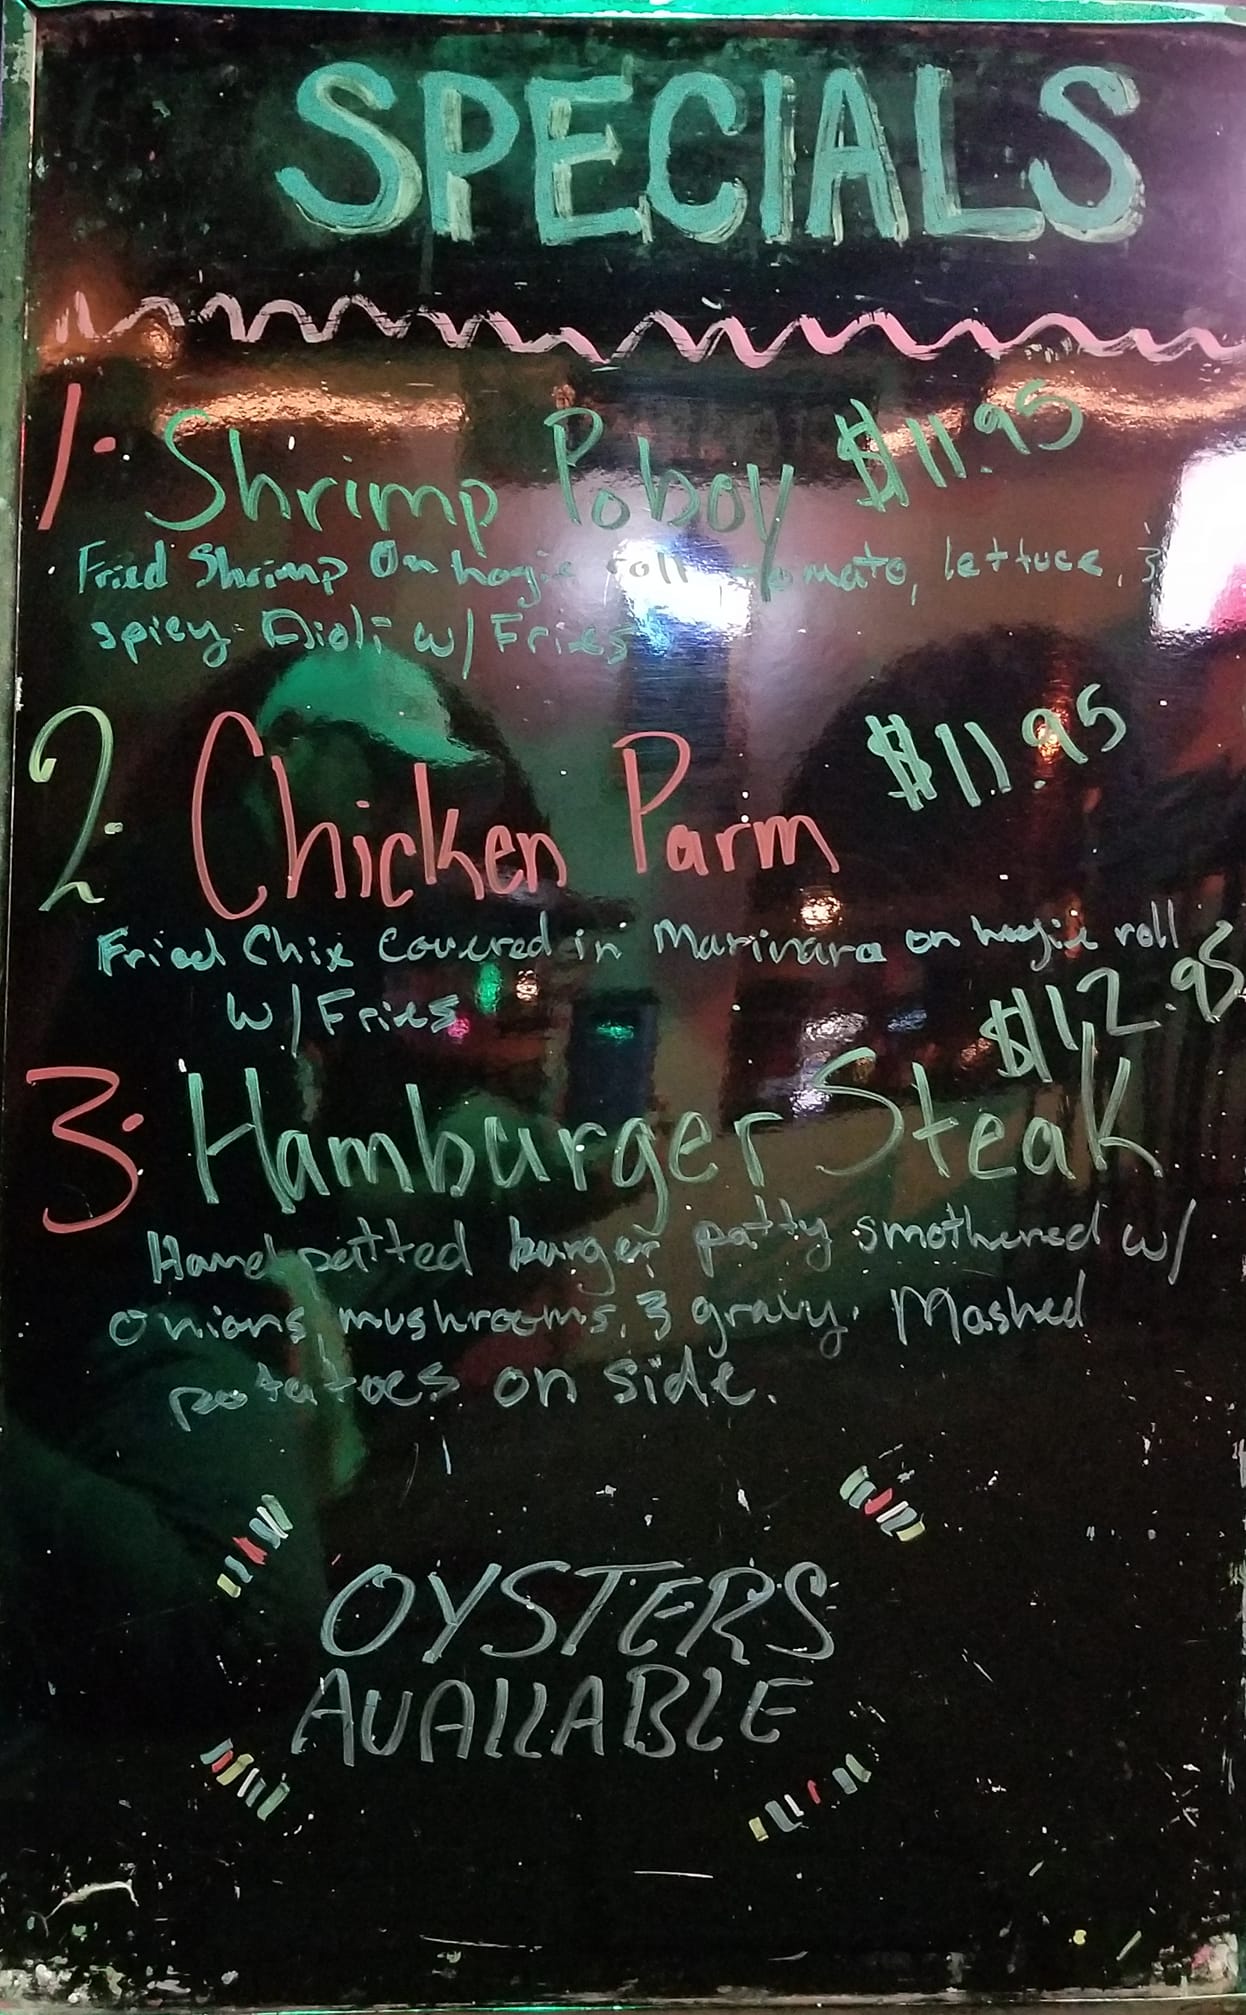 SPECIALS
1. Shrimp Poboy $11.95
Fried Shrimp On hogie roll, tomato, lettuce, &
spicy Aioli w/ Fries
2. Chicken Parm $11.95
Fried Chix covered in Marinara on hogie roll
w/ Fries
$12.95
3. Hamburger Steak
Hand patted burger patty smothered w/
onions, mushrooms, & gravy. Mashed
potatoes on side.
OYSTERS
AVAILABLE